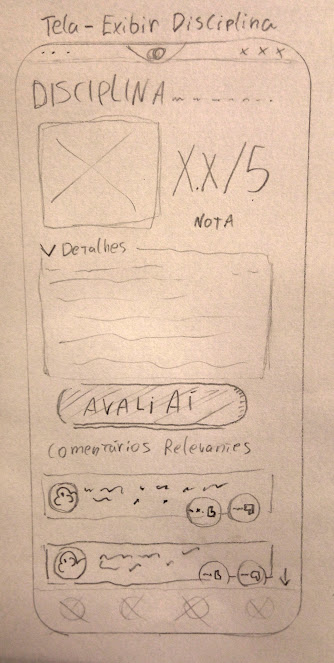 Tela - Exibir Disciplina
... xxx
DISCIPLINA
X.X/5
NOTA
Detalhes
AVALIAÍ
Comentários Relevantes